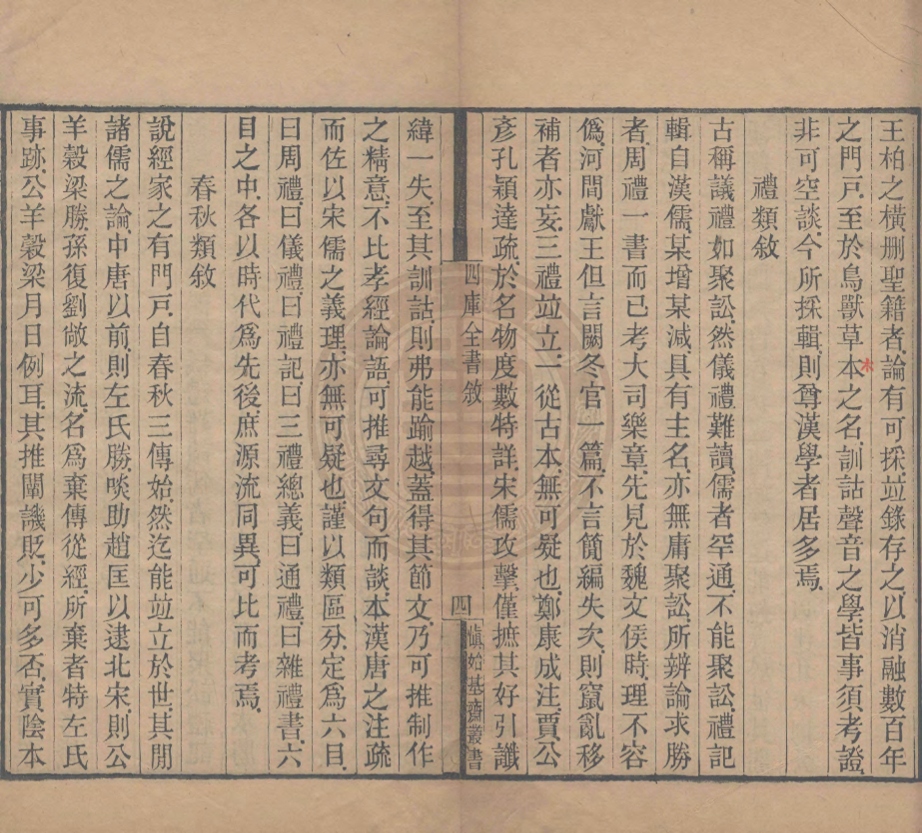 王柏之橫删聖籍者論有可採竝錄存之以消融數百年
之門戸至於鳥獸草本之名訓詁聲音之學皆事須考證
非可空談今所採輯則尊漢學者居多焉
禮類敘
古稱議禮如聚訟然儀禮難讀儒者罕通不能聚訟禮記
輯自漢儒某增某減具有主名亦無庸聚訟所辨論求勝
者周禮一書而已考大司樂章先見於魏文侯時理不容
僞河間獻王但言闕冬官一篇不言簡編失次則竄亂移
補者亦妄三禮竝立一從古本無可疑也鄭康成注賈公
彥孔穎達疏於名物度數特詳宋儒攻擊僅摭其好引讖
四庫全書敘
四
愼始基齋叢書
緯一失至其訓詁則弗能踰越蓋得其節文乃可推制作
之精意不比孝經論語可推尋文句而談本漢唐之注疏
而佐以宋儒之義理亦無可疑也謹以類區分定爲六目
曰周禮曰儀禮曰禮記曰三禮總義曰通禮曰雜禮書六
目之中各以時代爲先後庶源流同異可比而考焉
春秋類敘
說經家之有門戸自春秋三傳始然迄能竝立於世其閒
諸儒之論中唐以前則左氏勝啖助趙匡以逮北宋則公
羊穀梁勝孫復劉敞之流名爲棄傳從經所棄者特左氏
事跡公羊穀梁月日例耳其推闡譏貶少可多否實陰本